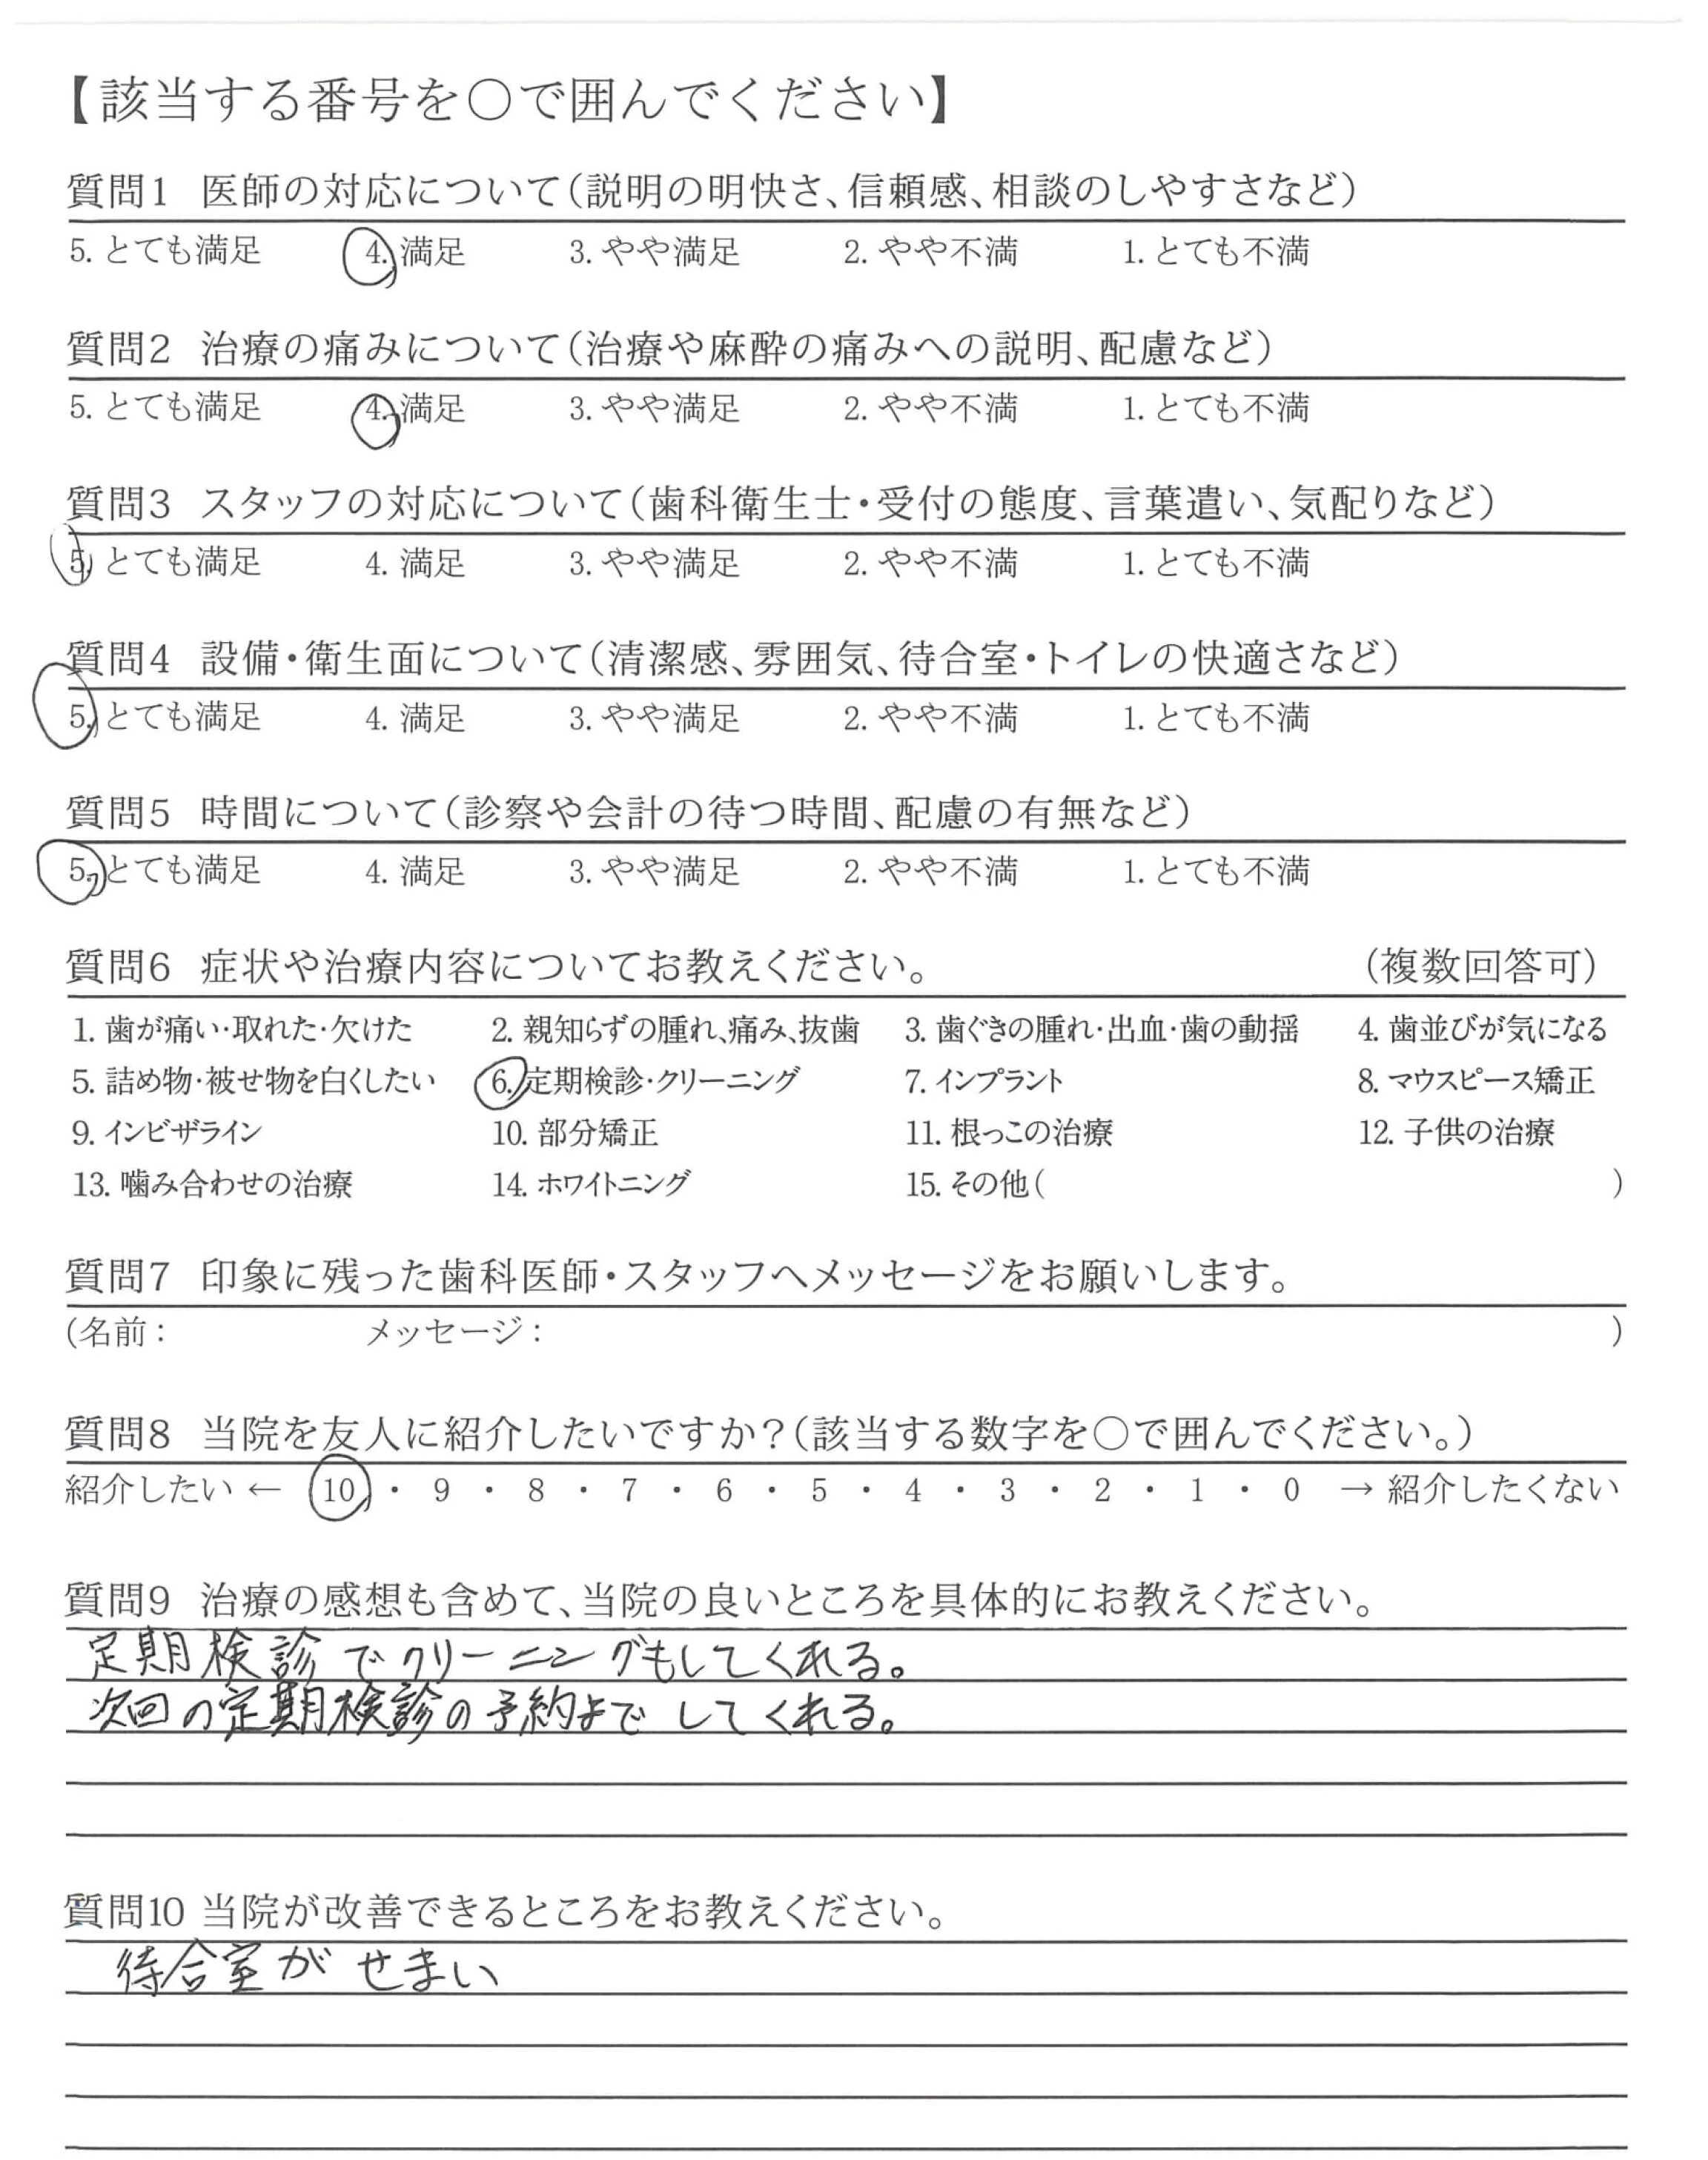 【該当する番号を○で囲んでください】
質問1 医師の対応について(説明の明快さ、信頼感、相談のしやすさなど)
5. とても満足 4. 満足 3. やや満足 2. やや不満 1. とても不満
質問2 治療の痛みについて(治療や麻酔の痛みへの説明、配慮など)
5. とても満足 4. 満足 3. やや満足 2. やや不満 1. とても不満
質問3 スタッフの対応について(歯科衛生士・受付の態度、言葉遣い、気配りなど)
5. とても満足 4. 満足 3. やや満足 2. やや不満 1. とても不満
質問4 設備・衛生面について(清潔感、雰囲気、待合室・トイレの快適さなど)
5. とても満足 4. 満足 3. やや満足 2. やや不満 1. とても不満
質問5 時間について(診察や会計の待つ時間、配慮の有無など)
5. とても満足 4. 満足 3. やや満足 2. やや不満 1. とても不満
質問6 症状や治療内容についてお教えください。 (複数回答可)
1. 歯が痛い・取れた・欠けた 2. 親知らずの腫れ、痛み、抜歯 3. 歯ぐきの腫れ・出血・歯の動揺 4. 歯並びが気になる
5. 詰め物・被せ物を白くしたい 6. 定期検診・クリーニング 7. インプラント 8. マウスピース矯正
9. インビザライン 10. 部分矯正 11. 根っこの治療 12. 子供の治療
13. 噛み合わせの治療 14. ホワイトニング 15. その他( )
質問7 印象に残った歯科医師・スタッフへメッセージをお願いします。
(名前: メッセージ: )
質問8 当院を友人に紹介したいですか?(該当する数字を○で囲んでください。)
紹介したい ← 10 ・ 9 ・ 8 ・ 7 ・ 6 ・ 5 ・ 4 ・ 3 ・ 2 ・ 1 ・ 0 → 紹介したくない
質問9 治療の感想も含めて、当院の良いところを具体的にお教えください。
定期検診でクリーニングもしてくれる。
次回の定期検診の予約までしてくれる。
質問10 当院が改善できるところをお教えください。
待合室がせまい